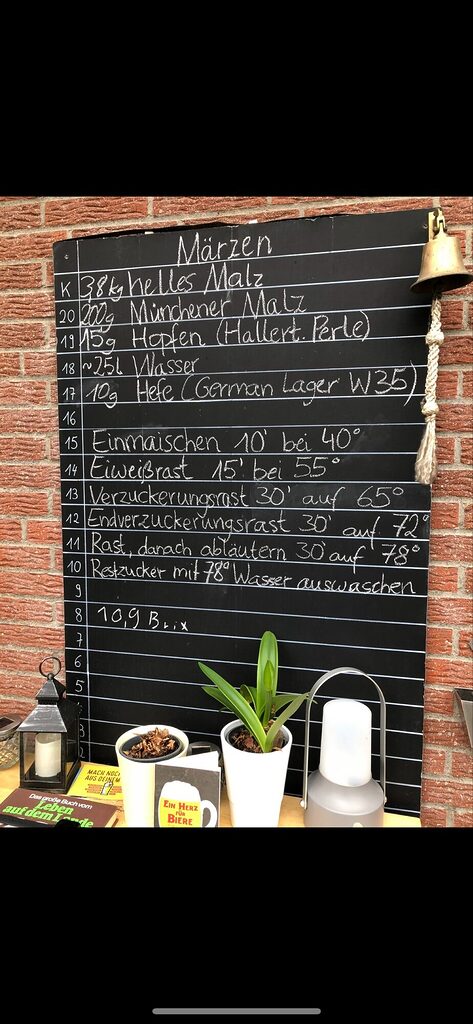 Märzen
K 3,8 kg helles Malz
20 200g Münchener Malz
19 15g Hopfen (Hallert. Perle)
18 ~25l Wasser
17 10g Hefe (German Lager W35)
16
15 Einmaischen 10' bei 40°
14 Eiweißrast 15' bei 55°
13 Verzuckerungsrast 30' auf 65°
12 Endverzuckerungsrast 30' auf 72°
11 Rast, danach abläutern 30' auf 78°
10 Restzucker mit 78° Wasser auswaschen
9
8 10,9 Brix
7
6
5
MACH NOCH
AUS DEINEM
EIN HERZ
FÜR
BIERE
Das große Buch vom
Leben
auf dem Lande